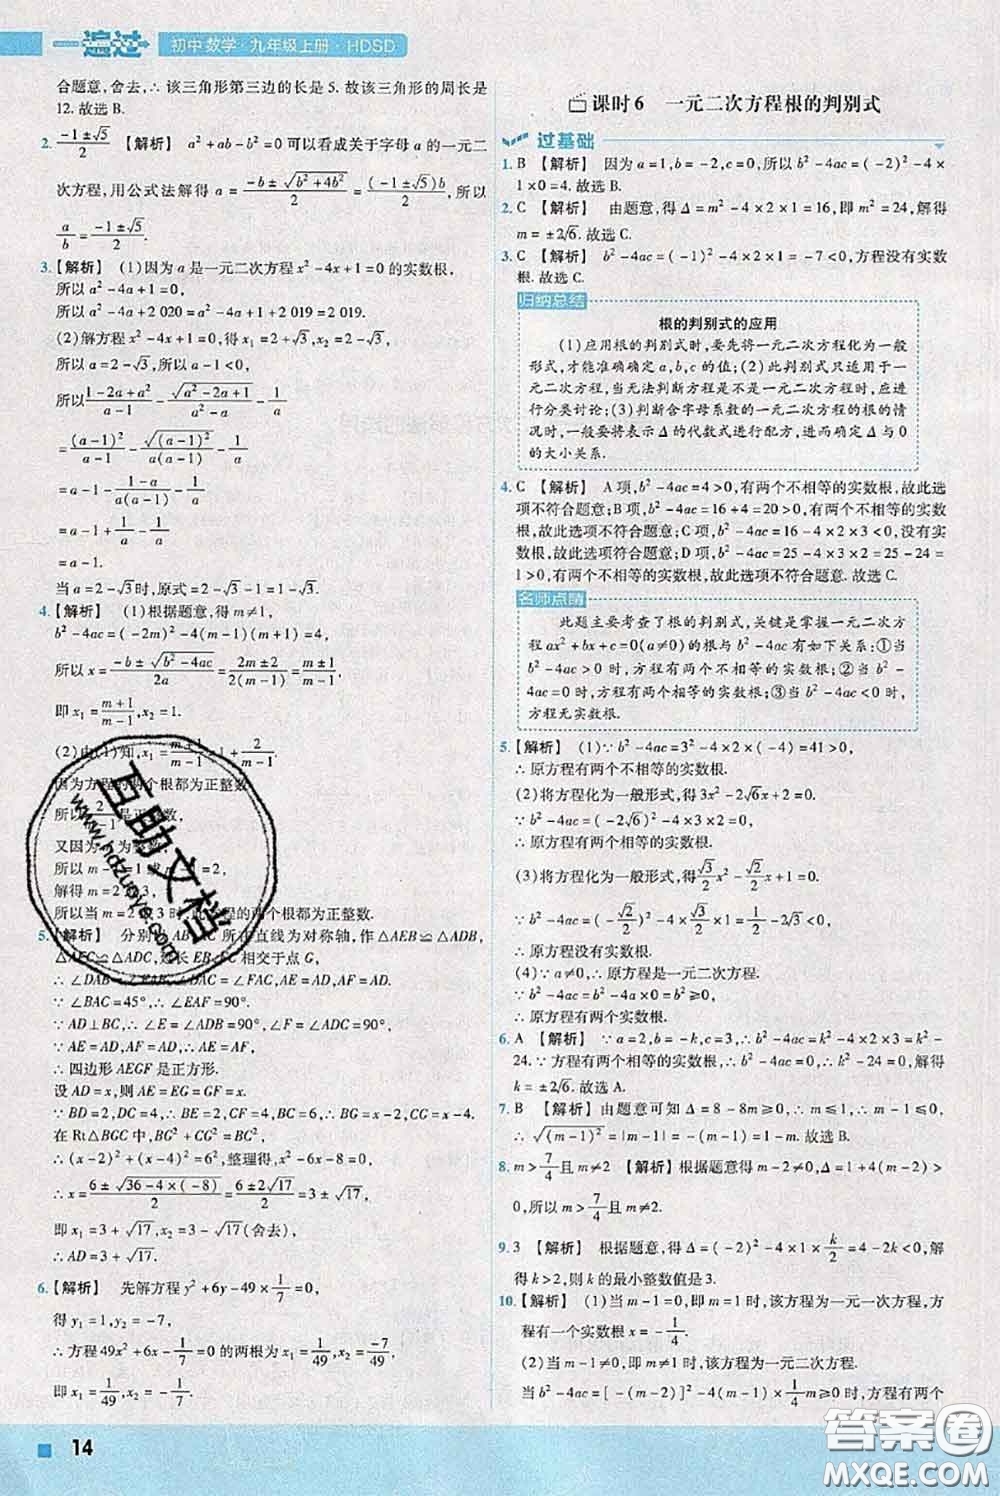 一遍过 初中数学·九年级上册·HDSD
合题意,舍去,∴ 该三角形第三边的长是 5. 故该三角形的周长是
12. 故选 B.
2. (-1±√5)/2 【解析】 a²+ab-b²=0 可以看成关于字母 a 的一元二
次方程,用公式法解得 a=(-b±√(b²+4b²))/2=((-1±√5)b)/2,所以
a/b=(-1±√5)/2.
3.【解析】 (1)因为 a 是一元二次方程 x²-4x+1=0 的实数根,
所以 a²-4a+1=0,
所以 a²-4a+2 020=a²-4a+1+2 019=2 019.
(2)解方程 x²-4x+1=0,得 x₁=2+√3,x₂=2-√3,
所以 a=2-√3,所以 a-1<0,
所以 (1-2a+a²)/(a-1)-√(a²-2a+1)/(a²-a)-1/a
=(a-1)²/(a-1)-√((a-1)²)/(a(a-1))-1/a
=a-1-(1-a)/(a(a-1))-1/a
=a-1+1/a-1/a
=a-1.
当 a=2-√3时,原式=2-√3-1=1-√3.
4.【解析】 (1)根据题意,得 m≠1,
b²-4ac=(-2m)²-4(m-1)(m+1)=4,
所以 x=(-b±√(b²-4ac))/2a=(2m±2)/(2(m-1))=(m±1)/(m-1),
即 x₁=(m+1)/(m-1),x₂=1.
(2)由(1)知,x₁=(m+1)/(m-1)=1+2/(m-1).
因为方程的两个根都为正整数,
所以 2/ -1 是正整数,
又因为 为整数,
所以 m-1=1 或 =2,
解得 m=2 3,
所以当 m=2 3 时,此方程的两个根都为正整数.
5.【解析】 分别以 AB,AC 所在直线为对称轴,作△AEB≌△ADB,
△AFC≌△ADC,延长 EB,FC 相交于点 G,
∴ ∠DAB=∠EAB,∠DAC=∠FAC,AE=AD,AF=AD.
∵ ∠BAC=45°,∴ ∠EAF=90°.
∵ AD⊥BC,∴ ∠E=∠ADB=90°,∠F=∠ADC=90°,
∵ AE=AD,AF=AD,∴ AE=AF,
∴ 四边形 AEGF 是正方形.
设 AD=x,则 AE=EG=GF=x.
∵ BD=2,DC=4,∴ BE=2,CF=4,∴ BG=x-2,CG=x-4.
在 Rt△BGC 中,BG²+CG²=BC²,
∴ (x-2)²+(x-4)²=6²,整理得,x²-6x-8=0,
∴ x=(6±√(36-4×(-8)))/2=(6±2√17)/2=3±√17,
即 x₁=3+√17,x₂=3-√17(舍去),
∴ AD=3+√17.
6.【解析】 先解方程 y²+6y-49×1/7=0,
得 y₁=1,y₂=-7,
∴ 方程 49x²+6x-1/7=0 的两根为 x₁=1/49,x₂=-7/49,
即 x₁=1/49,x₂=-1/7.
课时 6 一元二次方程根的判别式
过基础
1. B 【解析】 因为 a=1,b=-2,c=0,所以 b²-4ac=(-2)²-4×
1×0=4. 故选 B.
2. C 【解析】 由题意,得 Δ=m²-4×2×1=16,即 m²=24,解得
m=±2√6. 故选 C.
3. C 【解析】 b²-4ac=(-1)²-4×2×1=-7<0,方程没有实数
根. 故选 C.
归纳总结
根的判别式的应用
(1)应用根的判别式时,要先将一元二次方程化为一般
形式,才能准确确定 a,b,c 的值;(2)此判别式只适用于一
元二次方程,当无法判断方程是不是一元二次方程时,应进
行分类讨论;(3)判断含字母系数的一元二次方程的根的情
况时,一般要将表示 Δ 的代数式进行配方,进而确定 Δ 与 0
的大小关系.
4. C 【解析】 A 项,b²-4ac=4>0,有两个不相等的实数根,故此选
项不符合题意;B 项,b²-4ac=16+4=20>0,有两个不相等的实
数根,故此选项不符合题意;C 项,b²-4ac=16-4×2×3<0,没有实
数根,故此选项符合题意;D 项,b²-4ac=25-4×3×2=25-24=
1>0,有两个不相等的实数根,故此选项不符合题意. 故选 C.
名师点睛
此题主要考查了根的判别式,关键是掌握一元二次方
程 ax²+bx+c=0(a≠0)的根与 b²-4ac 有如下关系:①当
b²-4ac>0 时,方程有两个不相等的实数根;②当 b²-
4ac=0 时,方程有两个相等的实数根;③当 b²-4ac<0 时,
方程无实数根.
5.【解析】 (1)∵ b²-4ac=3²-4×(-4)×2=41>0,
∴ 原方程有两个不相等的实数根.
(2)将方程化为一般形式,得 3x²-2√6x+2=0.
∵ b²-4ac=(-2√6)²-4×3×2=0,
∴ 原方程有两个相等的实数根.
(3)将方程化为一般形式,得 √3/2 x²-√2/2 x+1=0.
∵ b²-4ac=(-√2/2)²-4×√3/2×1=1/2-2√3<0,
∴ 原方程没有实数根.
(4)∵ a≠0,∴ 原方程是一元二次方程.
∵ b²-4ac=(-b)²-4×a×0=b²≥0,
∴ 原方程有两个实数根.
6. A 【解析】 ∵ a=2,b=-k,c=3,∴ b²-4ac=k²-4×2×3=k²-
24.∵ 方程有两个相等的实数根,∴ b²-4ac=0,∴ k²-24=0,解得
k=±2√6. 故选 A.
7. B 【解析】 由题意可知 Δ=8-8m≥0,∴ m≤1,∴ m-1≤0,
∴ √((m-1)²)=|m-1|=-(m-1)=1-m. 故选 B.
8. m>7/4且 m≠2 【解析】根据题意,得 m-2≠0 且Δ=(2m+1)²-4(m-2)²>
0,所以 m>7/4且 m≠2.
9. 3 【解析】 根据题意,得 Δ=(-2)²-4×1×k/2=4-2k<0,解得
k>2,所以 k 的最小整数值是 3.
10.【解析】 (1)当 m-1=0,即 m=1 时,该方程为一元一次方程,
方程有一个实数根 x=-1/4.
(2)当 m-1≠0,即 m≠1 时,该方程为一元二次方程.
当 b²-4ac=[-(m-2)]²-4(m-1)×1/4 m>0 时,方程有两个
14
互助文档
www.hdzuoye.com
答案圈
MXQE.COM